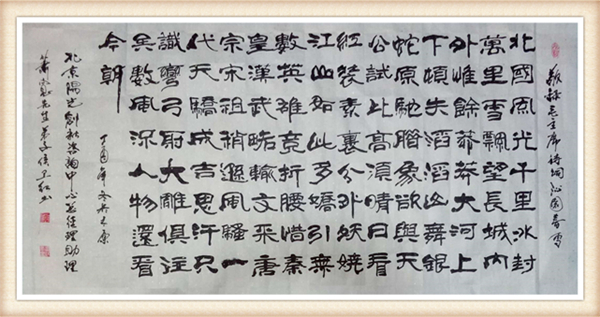 敬録毛主席詩詞沁園春雪
北國風光千里冰封
萬里雪飄望長城內
外惟餘莽莽大河上
下頓失滔滔山舞銀
蛇原馳臘象欲與天
公試比高須晴日看
紅裝素裹分外妖嬈
江山如此多嬌引無
數英雄競折腰惜秦
皇漢武略輸文采唐
宗宋祖稍遜風騷一
代天驕成吉思汗只
識彎弓射大雕俱往
矣數風流人物還看
今朝
丁酉年冬於太原
北京陽光創新咨詢中心總經理助理
先生弟子侯卫红书